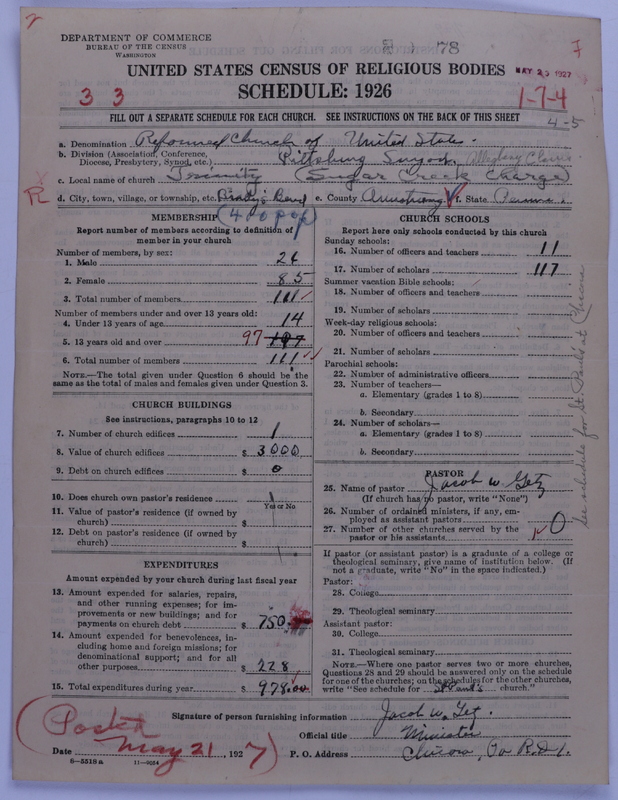 78
DEPARTMENT OF COMMERCE
BUREAU OF THE CENSUS
WASHINGTON
UNITED STATES CENSUS OF RELIGIOUS BODIES
MAY 2 1927
SCHEDULE: 1926
3 3
1-7-4
FILL OUT A SEPARATE SCHEDULE FOR EACH CHURCH. SEE INSTRUCTIONS ON THE BACK OF THIS SHEET
4-5
a. Denomination Reformed Church of United States.
b. Division (Association, Conference, Diocese, Presbytery, Synod, etc.) Pittsburg Synod, Allegheny Classis
c. Local name of church Trinity (Sugar Creek Charge)
R
d. City, town, village, or township, etc. Brady's Bend e. County Armstrong f. State Penna.
(400 pop)
MEMBERSHIP
Report number of members according to definition of member in your church
Number of members, by sex:
1. Male 26
2. Female 85
3. Total number of members 111
Number of members under and over 13 years old:
4. Under 13 years of age 14
5. 13 years old and over 97 197
6. Total number of members 111
NOTE.—The total given under Question 6 should be the same as the total of males and females given under Question 3.
CHURCH BUILDINGS
See instructions, paragraphs 10 to 12
7. Number of church edifices 1
8. Value of church edifices $ 3000
9. Debt on church edifices $ 0
10. Does church own pastor's residence
Yes or No
11. Value of pastor's residence (if owned by church) $
12. Debt on pastor's residence (if owned by church) $
EXPENDITURES
Amount expended by your church during last fiscal year
13. Amount expended for salaries, repairs, and other running expenses; for improvements or new buildings; and for payments on church debt $ 750.
14. Amount expended for benevolences, including home and foreign missions; for denominational support; and for all other purposes $ 228
15. Total expenditures during year $ 978.00
CHURCH SCHOOLS
Report here only schools conducted by this church
Sunday schools:
16. Number of officers and teachers 11
17. Number of scholars 117
Summer vacation Bible schools:
18. Number of officers and teachers
19. Number of scholars
Week-day religious schools:
20. Number of officers and teachers
21. Number of scholars
Parochial schools:
22. Number of administrative officers
23. Number of teachers—
a. Elementary (grades 1 to 8)
b. Secondary
24. Number of scholars—
a. Elementary (grades 1 to 8)
b. Secondary
See schedule for St. Pauls at Chicora
PASTOR
25. Name of pastor Jacob W. Getz
(If church has no pastor, write "None")
26. Number of ordained ministers, if any, employed as assistant pastors 0
27. Number of other churches served by the pastor or his assistants
If pastor (or assistant pastor) is a graduate of a college or theological seminary, give name of institution below. (If not a graduate, write "No" in the space indicated.)
Pastor:
28. College
29. Theological seminary
Assistant pastor:
30. College
31. Theological seminary
NOTE.—Where one pastor serves two or more churches, Questions 28 and 29 should be answered only on the schedule for one of the churches; on the schedules for the other churches, write "See schedule for St Paul's church."
Signature of person furnishing information Jacob W. Getz.
Official title Minister
(Posted May 21, 1927)
Date 192
P. O. Address Chicora, Pa R.D.1.
8-5518 a 11-9054